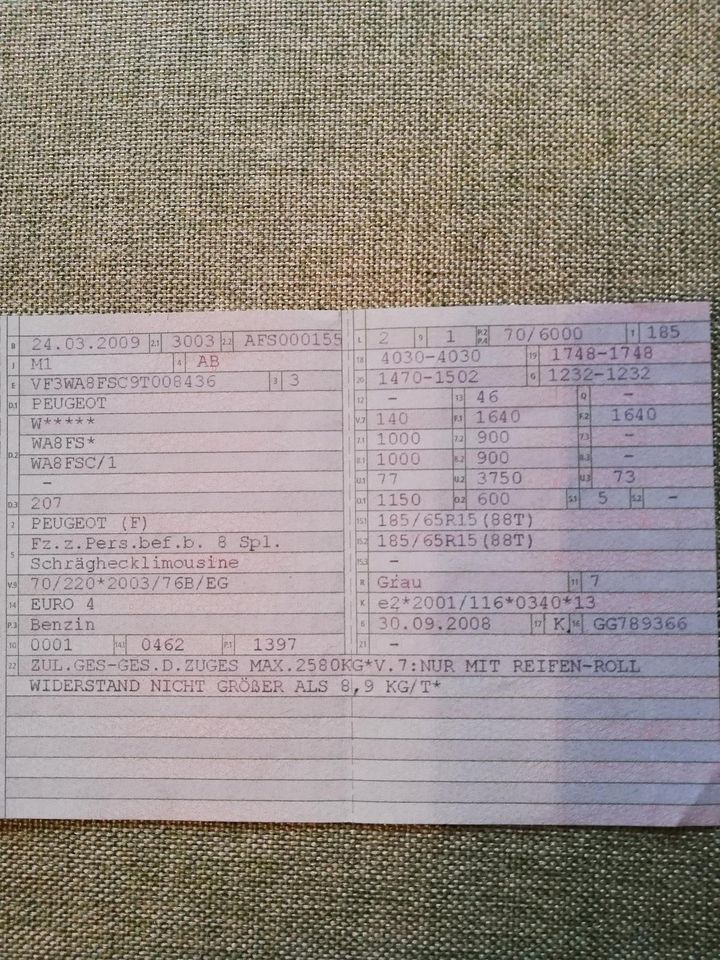 B 24.03.2009 2.1 3003 2.2 AFS000155
J M1 4 AB
E VF3WA8FSC9T008436 3 3
D.1 PEUGEOT
W*****
D.2 WA8FS*
WA8FSC/1
-
D.3 207
2 PEUGEOT (F)
5 Fz.z.Pers.bef.b. 8 Spl.
Schräghecklimousine
V.9 70/220*2003/76B/EG
14 EURO 4
P.3 Benzin
10 0001 14.1 0462 P.1 1397
L 2 9 1 P.2 P.4 70/6000 T 185
18 4030-4030 19 1748-1748
20 1470-1502 G 1232-1232
12 - 13 46 Q -
V.7 140 F.1 1640 F.2 1640
7.1 1000 7.2 900 7.3 -
8.1 1000 8.2 900 8.3 -
U.1 77 U.2 3750 U.3 73
O.1 1150 O.2 600 S.1 5 S.2 -
15.1 185/65R15(88T)
15.2 185/65R15(88T)
15.3 -
R Grau 11 7
K e2*2001/116*0340*13
6 30.09.2008 17 K 16 GG789366
21 -
22 ZUL.GES-GES.D.ZUGES MAX.2580KG*V.7:NUR MIT REIFEN-ROLL
WIDERSTAND NICHT GRÖßER ALS 8,9 KG/T*